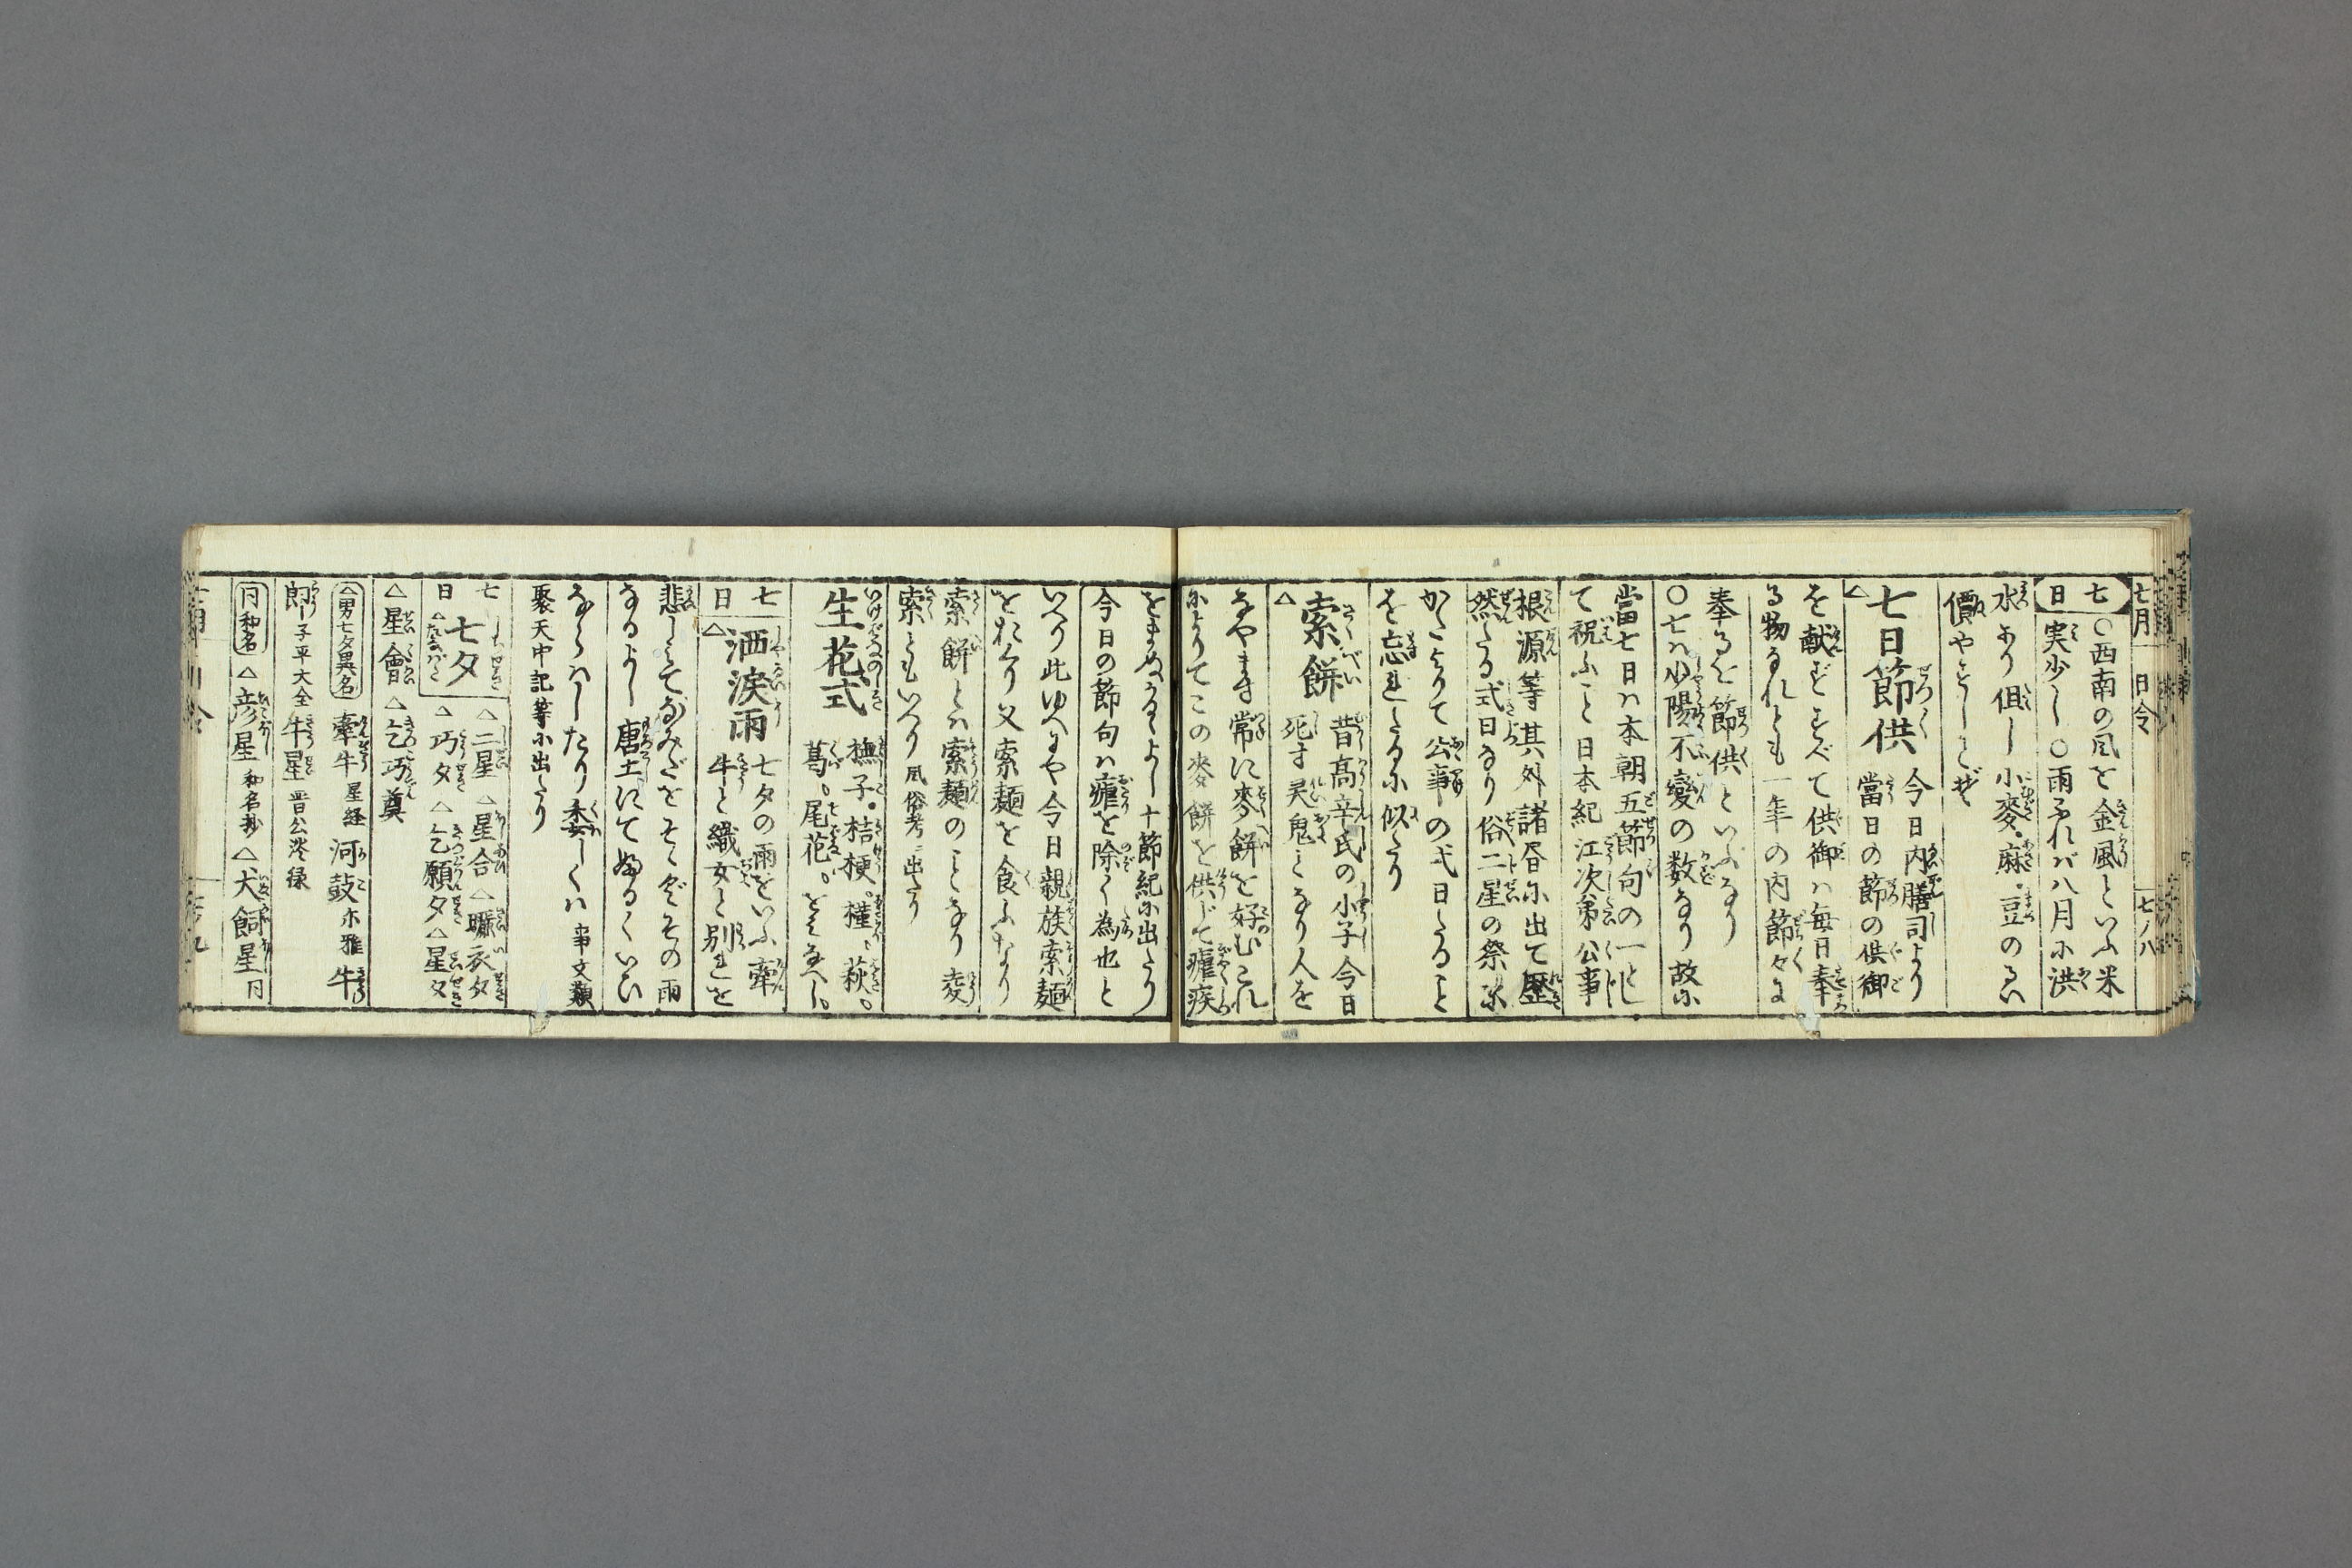 七月 日令 七ノ八
七日
○西南の風を金風といふ米
実少し○雨ふれバ八月に洪
水あり但し小麦・麻・豆のるい
價やすしとぞ
△七日節供 今日内膳司より
當日の節の供御
を献ずすべて供御ハ毎日奉
る物なれとも一年の内節々に
奉るを節供といふなり
○七ハ少陽不變の数なり故に
當七日ハ本朝五節句の一とし
て祝ふこと日本紀江次第公事
根源等其外諸書に出て歴
然たる式日なり俗二星の祭に
かたよりて公事の式日たること
を忘れたるに似たり
△索餅 昔高辛氏の小子今日
死す灵鬼となり人を
なやます常に麥餅を好むこれ
によりてこの麥餅を供じて瘧疾
をまぬかるよし十節紀に出たり
今日の節句ハ瘧を除く為也と
いへり此ゆへにや今日親族索麺
をおくり又索麺を食ふなり
索餅とハ索麺のことなり
索ともいへり風俗考ニ出たり
生花式 撫子・桔梗。槿。萩。
葛。尾花。をミなへし。
七日
△洒涙雨 七夕の雨をいふ牽
牛と織女と別れを
悲しミてなみだをそゝぎその雨
なるよし唐土にて
ならハしたり委しくハ事文類
聚天中記等に出たり
七日
七夕
△二星 △星合 △曝衣夕
△巧夕 △乞願夕 △星夕
△星會 △乞巧奠
△男七夕異名 牽牛星経 河鼓尓雅 牛
郎子平大全 牛星晋公遂録
同和名 △彦星和名抄 △犬飼星同